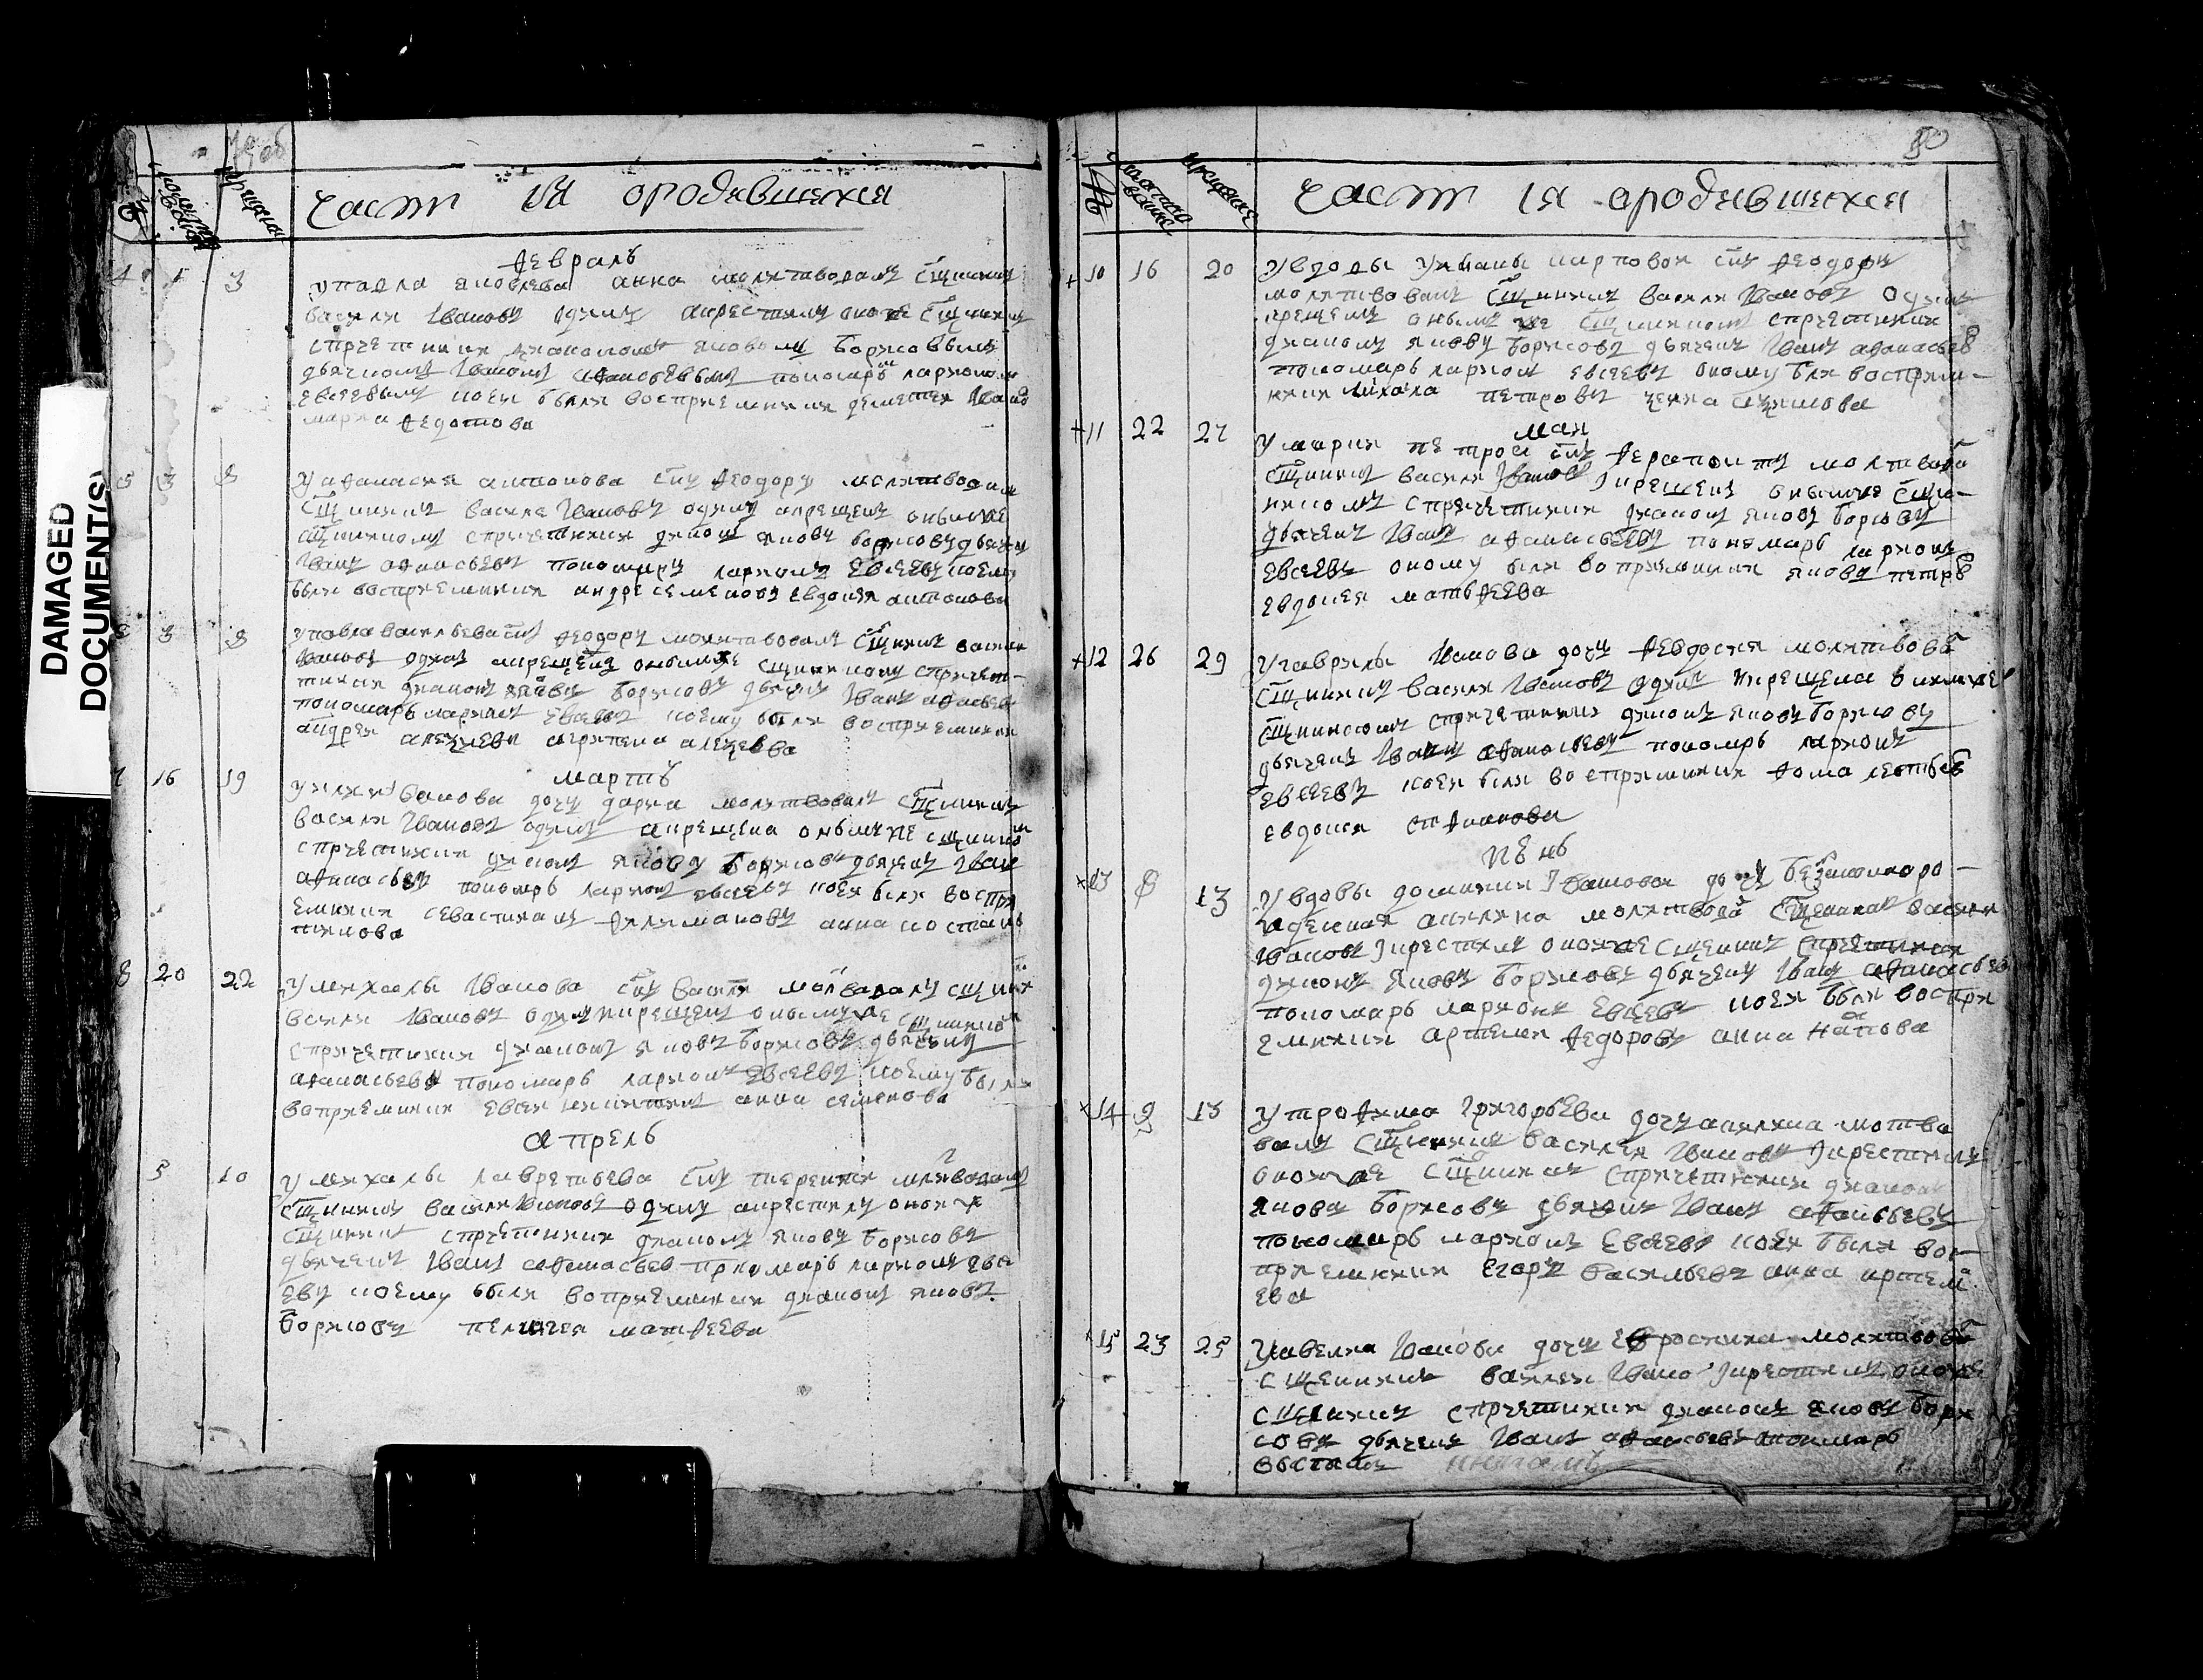 DAMAGED
DOCUMENT(S)
част 1я ородившихся
февраль
4 1 3
у павла яковлева анна молитвовалъ сщенникъ
василий Ивановъ одинъ а крестилъ оной же сщенникъ
спричетники диакономъ яковомъ борисовымъ
дьячкомъ Иваномъ афанасьевымъ пономарь ларионом
евсеевымъ коей были восприемники дементей Иванов
марья федотова
5 3 8
у афанасия антонова снъ феодоръ молитвовалъ
сщенникъ василей Ивановъ одинъ а крещенъ онымже
сщенникомъ спричетники диаконъ яковъ борисовъ дьячекъ
Иванъ афанасьевъ пономарь ларионъ евсеевъ коему
были восприемники андре семеновъ евдокия антонова
3 8
у павла васильева снъ феодоръ молитвовалъ сщенникъ василий
Ивановъ одинъ а крещенъ онымже сщенникомъ спричет-
ники диаконъ яковъ борисовъ дьячекъ Иванъ афанасьев
пономарь ларионъ евсеевъ коему были восприемники
андрей алексеевъ агрипена алексеева
мартъ
7 16 19
Иванова дочь дарья молитвовалъ сщенникъ
василий Ивановъ одинъ а крещена онымже сщенником
спричетники диаконъ яковъ борисовъ дьячекъ Иван
афанасьевъ пономарь ларионъ евсеевъ коей были воспри
емники севастианъ филимоновъ анна костань
тинова
8 20 22
у михаилы Иванова снъ василий молитвовалъ сщенник
василий Ивановъ одинъ и крещенъ онымже сщенником
спричетники диаконъ яковъ борисовъ дьячекъ
афанасьевъ пономарь ларионъ евсеевъ коему были
воприемники евсей никитинъ анна семенова
апрель
5 10
у михаилы лаврентьева снъ терентей молитвовалъ
сщенникъ василей Ивановъ одинъ а крестилъ оной ж
сщенникъ спричетники диаконъ яковъ борисовъ
дьячекъ Иванъ афонасьев пономарь ларион евсе
евъ коему были воприемники диаконъ яковъ
борисовъ пелагея матфеева
50
част 1я ородившихся
10 16 20
у вдовы ульяны карповой снъ феодоръ
молитвованъ сщенникъ василий Ивановъ одинъ
крещенъ онымъ же сщенникомъ спричетники
диаконъ яковъ борисовъ дьячекъ Иванъ афанасьев
пономарь ларион евсеевъ оному были восприем-
ники михаила петровъ
маи
11 22 27
у марки петрова снъ ферапонтъ молитвовал
сщенникъ василий Ивановъ и крещенъ онымже сщен-
никомъ спричетники диаконъ яковъ борисовъ
дьячекъ Иванъ афанасьевъ пономарь ларионъ
евсеевъ оному были воприемники яковъ петров
евдокея матьфеева
12 26 29
у гаврилы Иванова дочь февдосия молитвовал
сщенникъ василий Ивановъ один и крещена онымже
сщенникомъ спричетники диаконъ яковъ борисовъ
дьячекъ Иванъ афанасьевъ пономарь ларионъ
евсеевъ коей были воспрemники фома леотьев
евдокея
июнь
13 8 13
у вдовы домники Ивановой дочь беззаконноро-
жденная акилина молитвовал сщенникъ василей
Ивановъ и крестилъ онойже сщенникъ спричетники
диаконъ яковъ борисовъ дьячекъ Иванъ афанасьев
пономарь ларионъ евсеевъ коей были воспри
емники артемей федоровъ анна
14 9 13
у трофима григорьева дочь акилина мотво
валъ сщенникъ василей Ивановъ и крестилъ
оной же сщенникъ спричетники диаконъ
яковъ борисовъ дьячекъ Иванъ афанасьевъ
пономарь ларионъ евсеевъ коей были вос-
приемники егоръ васильевъ анна артем
ева
15 23 25
у савелия Иванова дочь ефросиния молитвовал
сщенникъ василей Ивано и крестилъ оной же
сщенникъ спричетники диаконъ яковъ бори
совъ дьячекъ Иванъ афанасьевъ пономарь